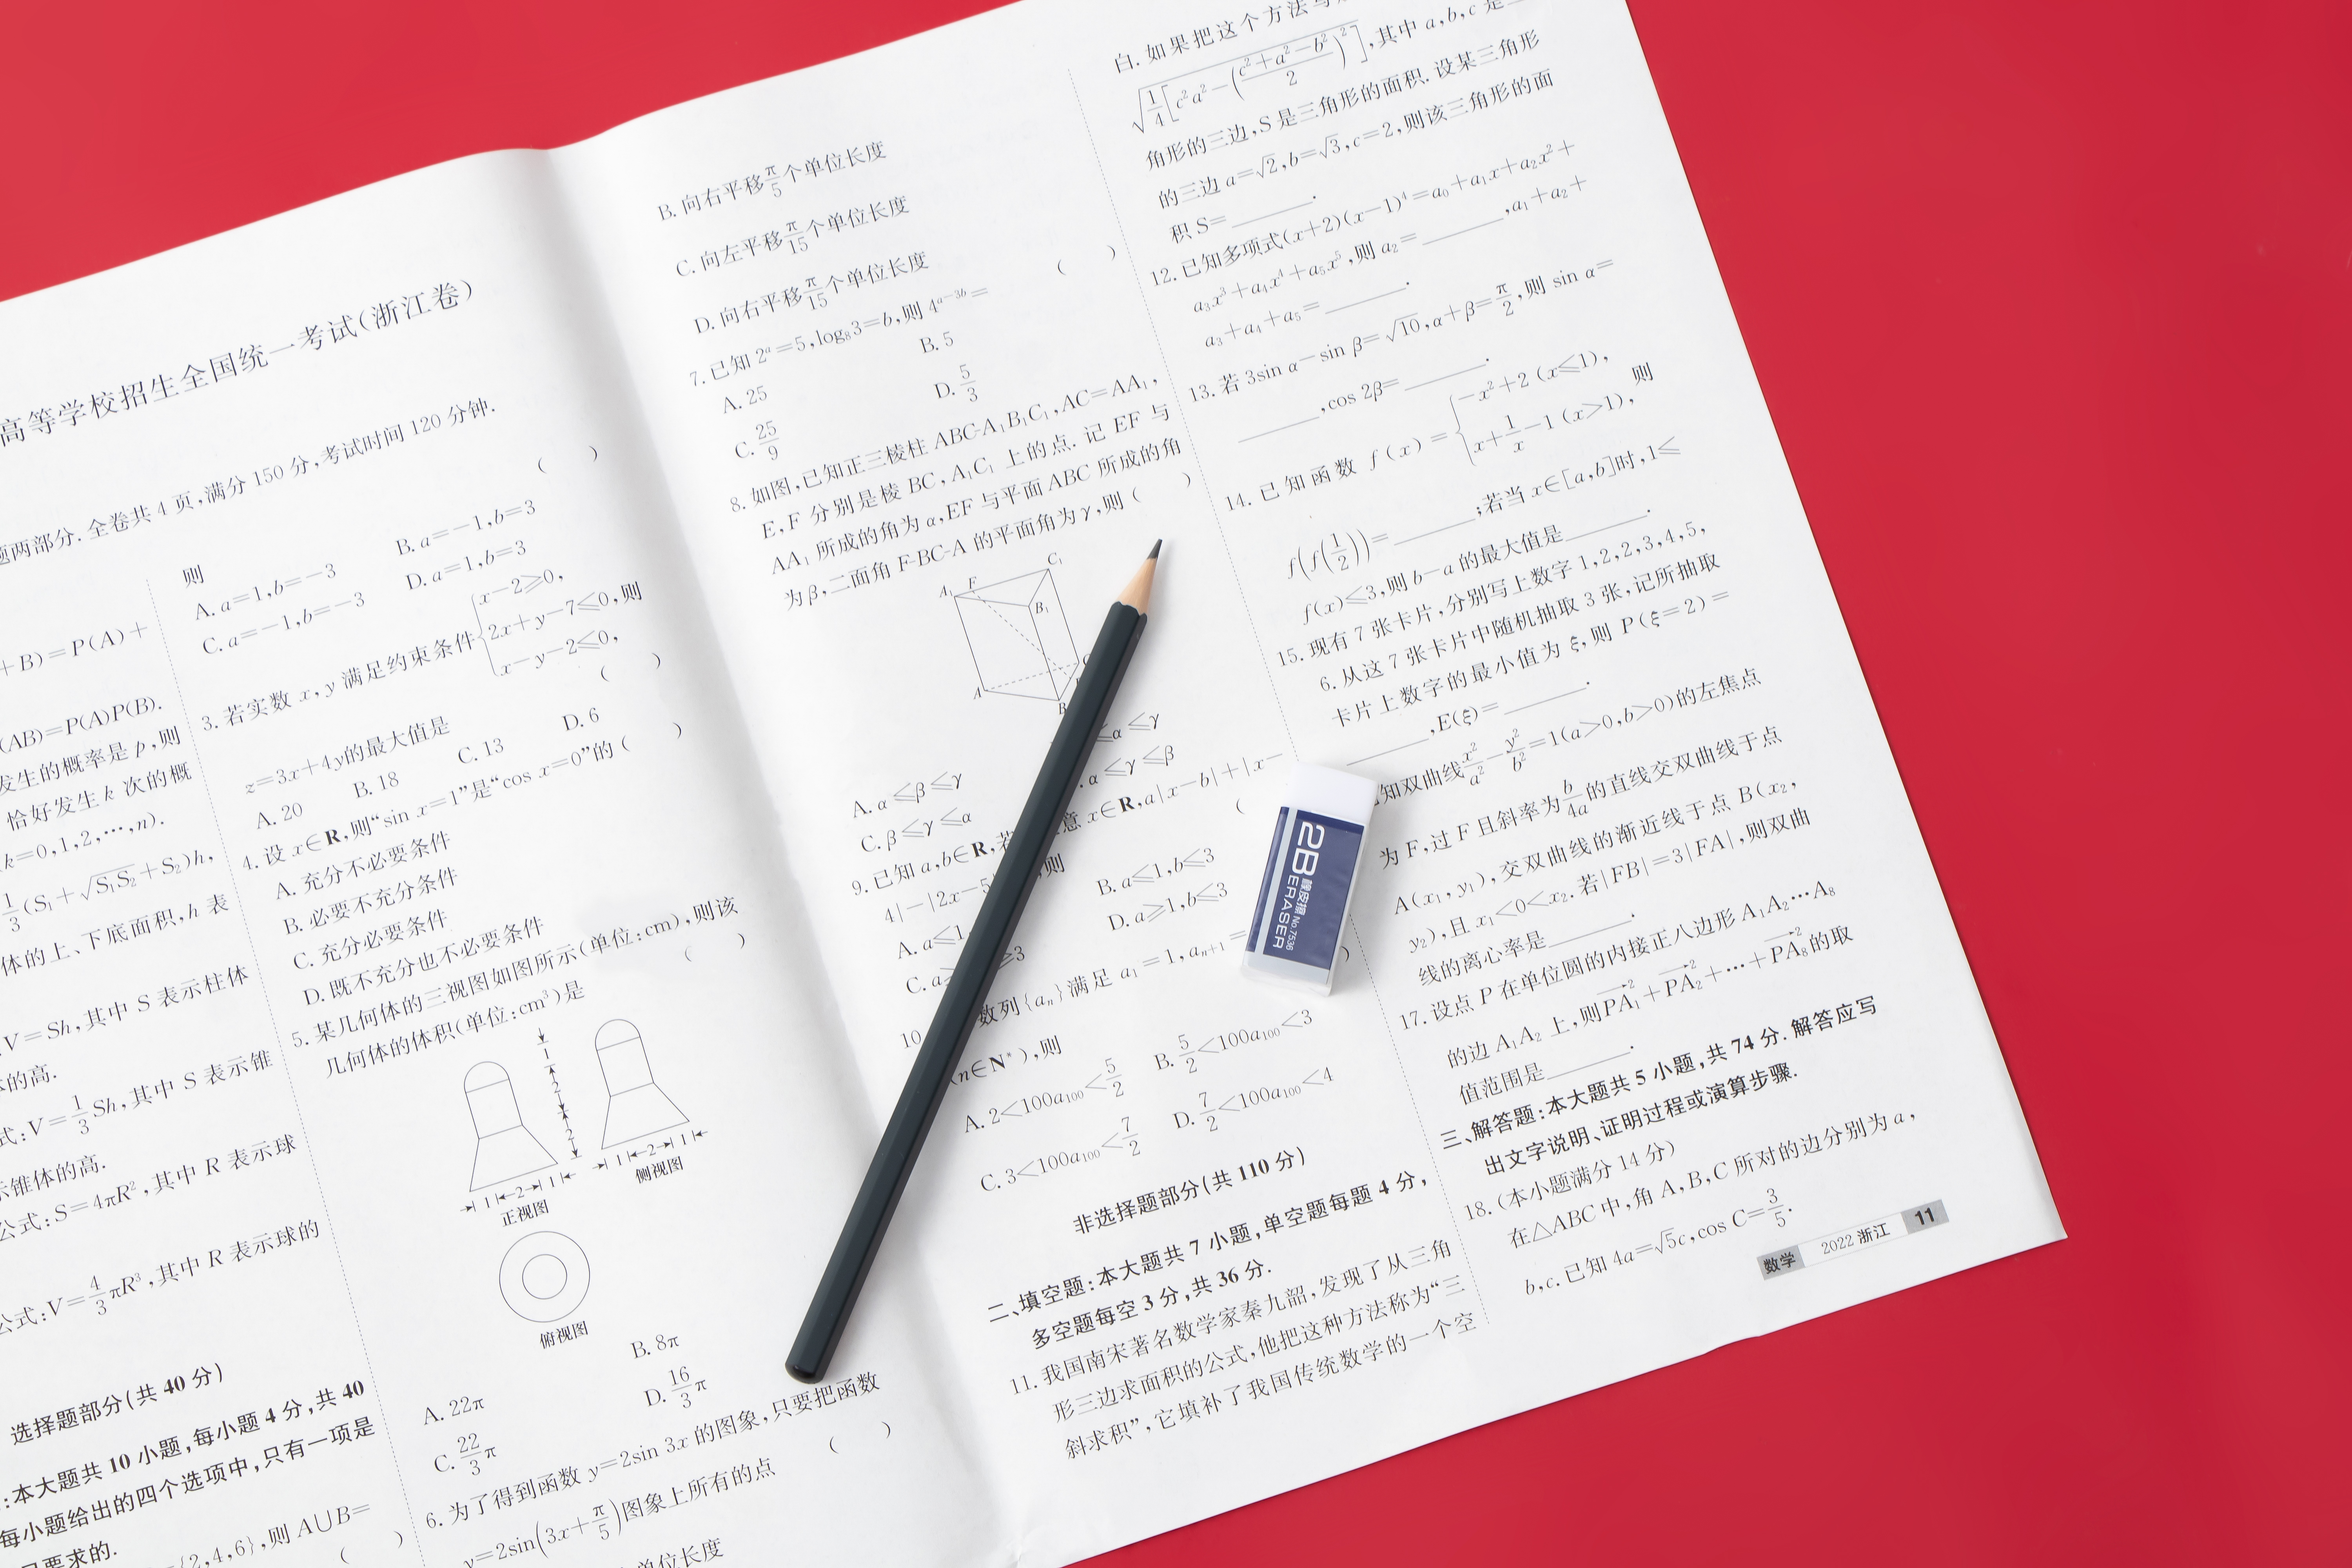 高等学校招生全国统一考试(浙江卷)
题两部分. 全卷共 4 页,满分 150 分,考试时间 120 分钟.
+B)=P(A)+
(AB)=P(A)P(B).
发生的概率是 p,则
恰好发生 k 次的概
(k=0,1,2,…,n).
1/3(S₁+√S₁S₂+S₂)h,
体的上、下底面积,h 表
V=Sh,其中 S 表示柱体
体的高.
式:V=1/3 Sh,其中 S 表示锥
示锥体的高.
公式:S=4πR²,其中 R 表示球
公式:V=4/3 πR³,其中 R 表示球的
选择题部分(共 40 分)
:本大题共 10 小题,每小题 4 分,共 40
每小题给出的四个选项中,只有一项是
要求的.
={2,4,6},则 A∪B=
( )
则 ( )
A. a=1,b=-3 B. a=-1,b=3
C. a=-1,b=-3 D. a=1,b=3
3. 若实数 x,y 满足约束条件{x-2≥0, 2x+y-7≤0, x-y-2≤0,则
z=3x+4y的最大值是 ( )
A. 20 B. 18 C. 13 D. 6
4. 设 x∈R,则“sin x=1”是“cos x=0”的 ( )
A. 充分不必要条件
B. 必要不充分条件
C. 充分必要条件
D. 既不充分也不必要条件
5. 某几何体的三视图如图所示(单位:cm),则该
几何体的体积(单位:cm³)是 ( )
1
2
2
1 2 1
正视图
1 2 1
侧视图
俯视图
A. 22π B. 8π
C. 22/3 π D. 16/3 π
6. 为了得到函数 y=2sin 3x 的图象,只要把函数
y=2sin(3x+π/5)图象上所有的点 ( )
单位长度
B. 向右平移π/5个单位长度
C. 向左平移π/15个单位长度
D. 向右平移π/15个单位长度
7. 已知 2ᵃ=5,log₈3=b,则 4ᵃ⁻³ᵇ= ( )
A. 25 B. 5
C. 25/9 D. 5/3
8. 如图,已知正三棱柱 ABC-A₁B₁C₁,AC=AA₁,
E,F 分别是棱 BC,A₁C₁ 上的点. 记 EF 与
AA₁ 所成的角为 α,EF 与平面 ABC 所成的角
为 β,二面角 F-BC-A 的平面角为 γ,则 ( )
A₁ F C₁
B₁
A
B
A. α≤β≤γ α≤γ
C. β≤γ≤α α≤γ≤β
9. 已知 a,b∈R,若 意 x∈R,a|x-b|+|x-
4|-|2x-5 则 (
A. a≤1 B. a≤1,b≤3
C. a≥ ≥3 D. a≥1,b≤3
10 数列{aₙ}满足 a₁=1,aₙ₊₁=
(n∈N*),则 )
A. 2<100a₁₀₀<5/2 B. 5/2<100a₁₀₀<3
C. 3<100a₁₀₀<7/2 D. 7/2<100a₁₀₀<4
非选择题部分(共 110 分)
二、填空题:本大题共 7 小题,单空题每题 4 分,
多空题每空 3 分,共 36 分.
11. 我国南宋著名数学家秦九韶,发现了从三角
形三边求面积的公式,他把这种方法称为“三
斜求积”,它填补了我国传统数学的一个空
白. 如果把这个方法
√(1/4[c²a²-((c²+a²-b²)/2)²]),其中 a,b,c 是
角形的三边,S 是三角形的面积. 设某三角形
的三边 a=√2,b=√3,c=2,则该三角形的面
积 S=______.
12. 已知多项式(x+2)(x-1)⁴=a₀+a₁x+a₂x²+
a₃x³+a₄x⁴+a₅x⁵,则 a₂=______,a₁+a₂+
a₃+a₄+a₅=______.
13. 若 3sin α-sin β=√10,α+β=π/2,则 sin α=
______,cos 2β=______.
14. 已知函数 f(x)={-x²+2 (x≤1), x+1/x-1 (x>1), 则
f(f(1/2))=______;若当 x∈[a,b]时,1≤
f(x)≤3,则 b-a 的最大值是______.
15. 现有 7 张卡片,分别写上数字 1,2,2,3,4,5,
6. 从这 7 张卡片中随机抽取 3 张,记所抽取
卡片上数字的最小值为 ξ,则 P(ξ=2)=
______,E(ξ)=______.
知双曲线x²/a²-y²/b²=1(a>0,b>0)的左焦点
为 F,过 F 且斜率为b/4a的直线交双曲线于点
A(x₁,y₁),交双曲线的渐近线于点 B(x₂,
y₂),且 x₁<0<x₂. 若|FB|=3|FA|,则双曲
线的离心率是______.
17. 设点 P 在单位圆的内接正八边形 A₁A₂…A₈
的边 A₁A₂ 上,则PA₁²+PA₂²+…+PA₈²的取
值范围是______.
三、解答题:本大题共 5 小题,共 74 分. 解答应写
出文字说明、证明过程或演算步骤.
18. (本小题满分 14 分)
在△ABC 中,角 A,B,C 所对的边分别为 a,
b,c. 已知 4a=√5c,cos C=3/5.
数学 2022 浙江 11
2B 橡皮擦 No.7536
ERASER